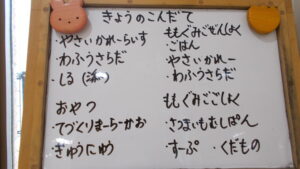 きょうのこんだて
・やさいかれーらいす
・わふうさらだ
・しる
おやつ
・てづくりまーらーかお
・ぎゅうにゅう
ももぐみごぜんしょく
・ごはん
・やさいかれー
・わふうさらだ
ももぐみごごしょく
・さつまいもむしぱん
・すーぷ ・くだもの